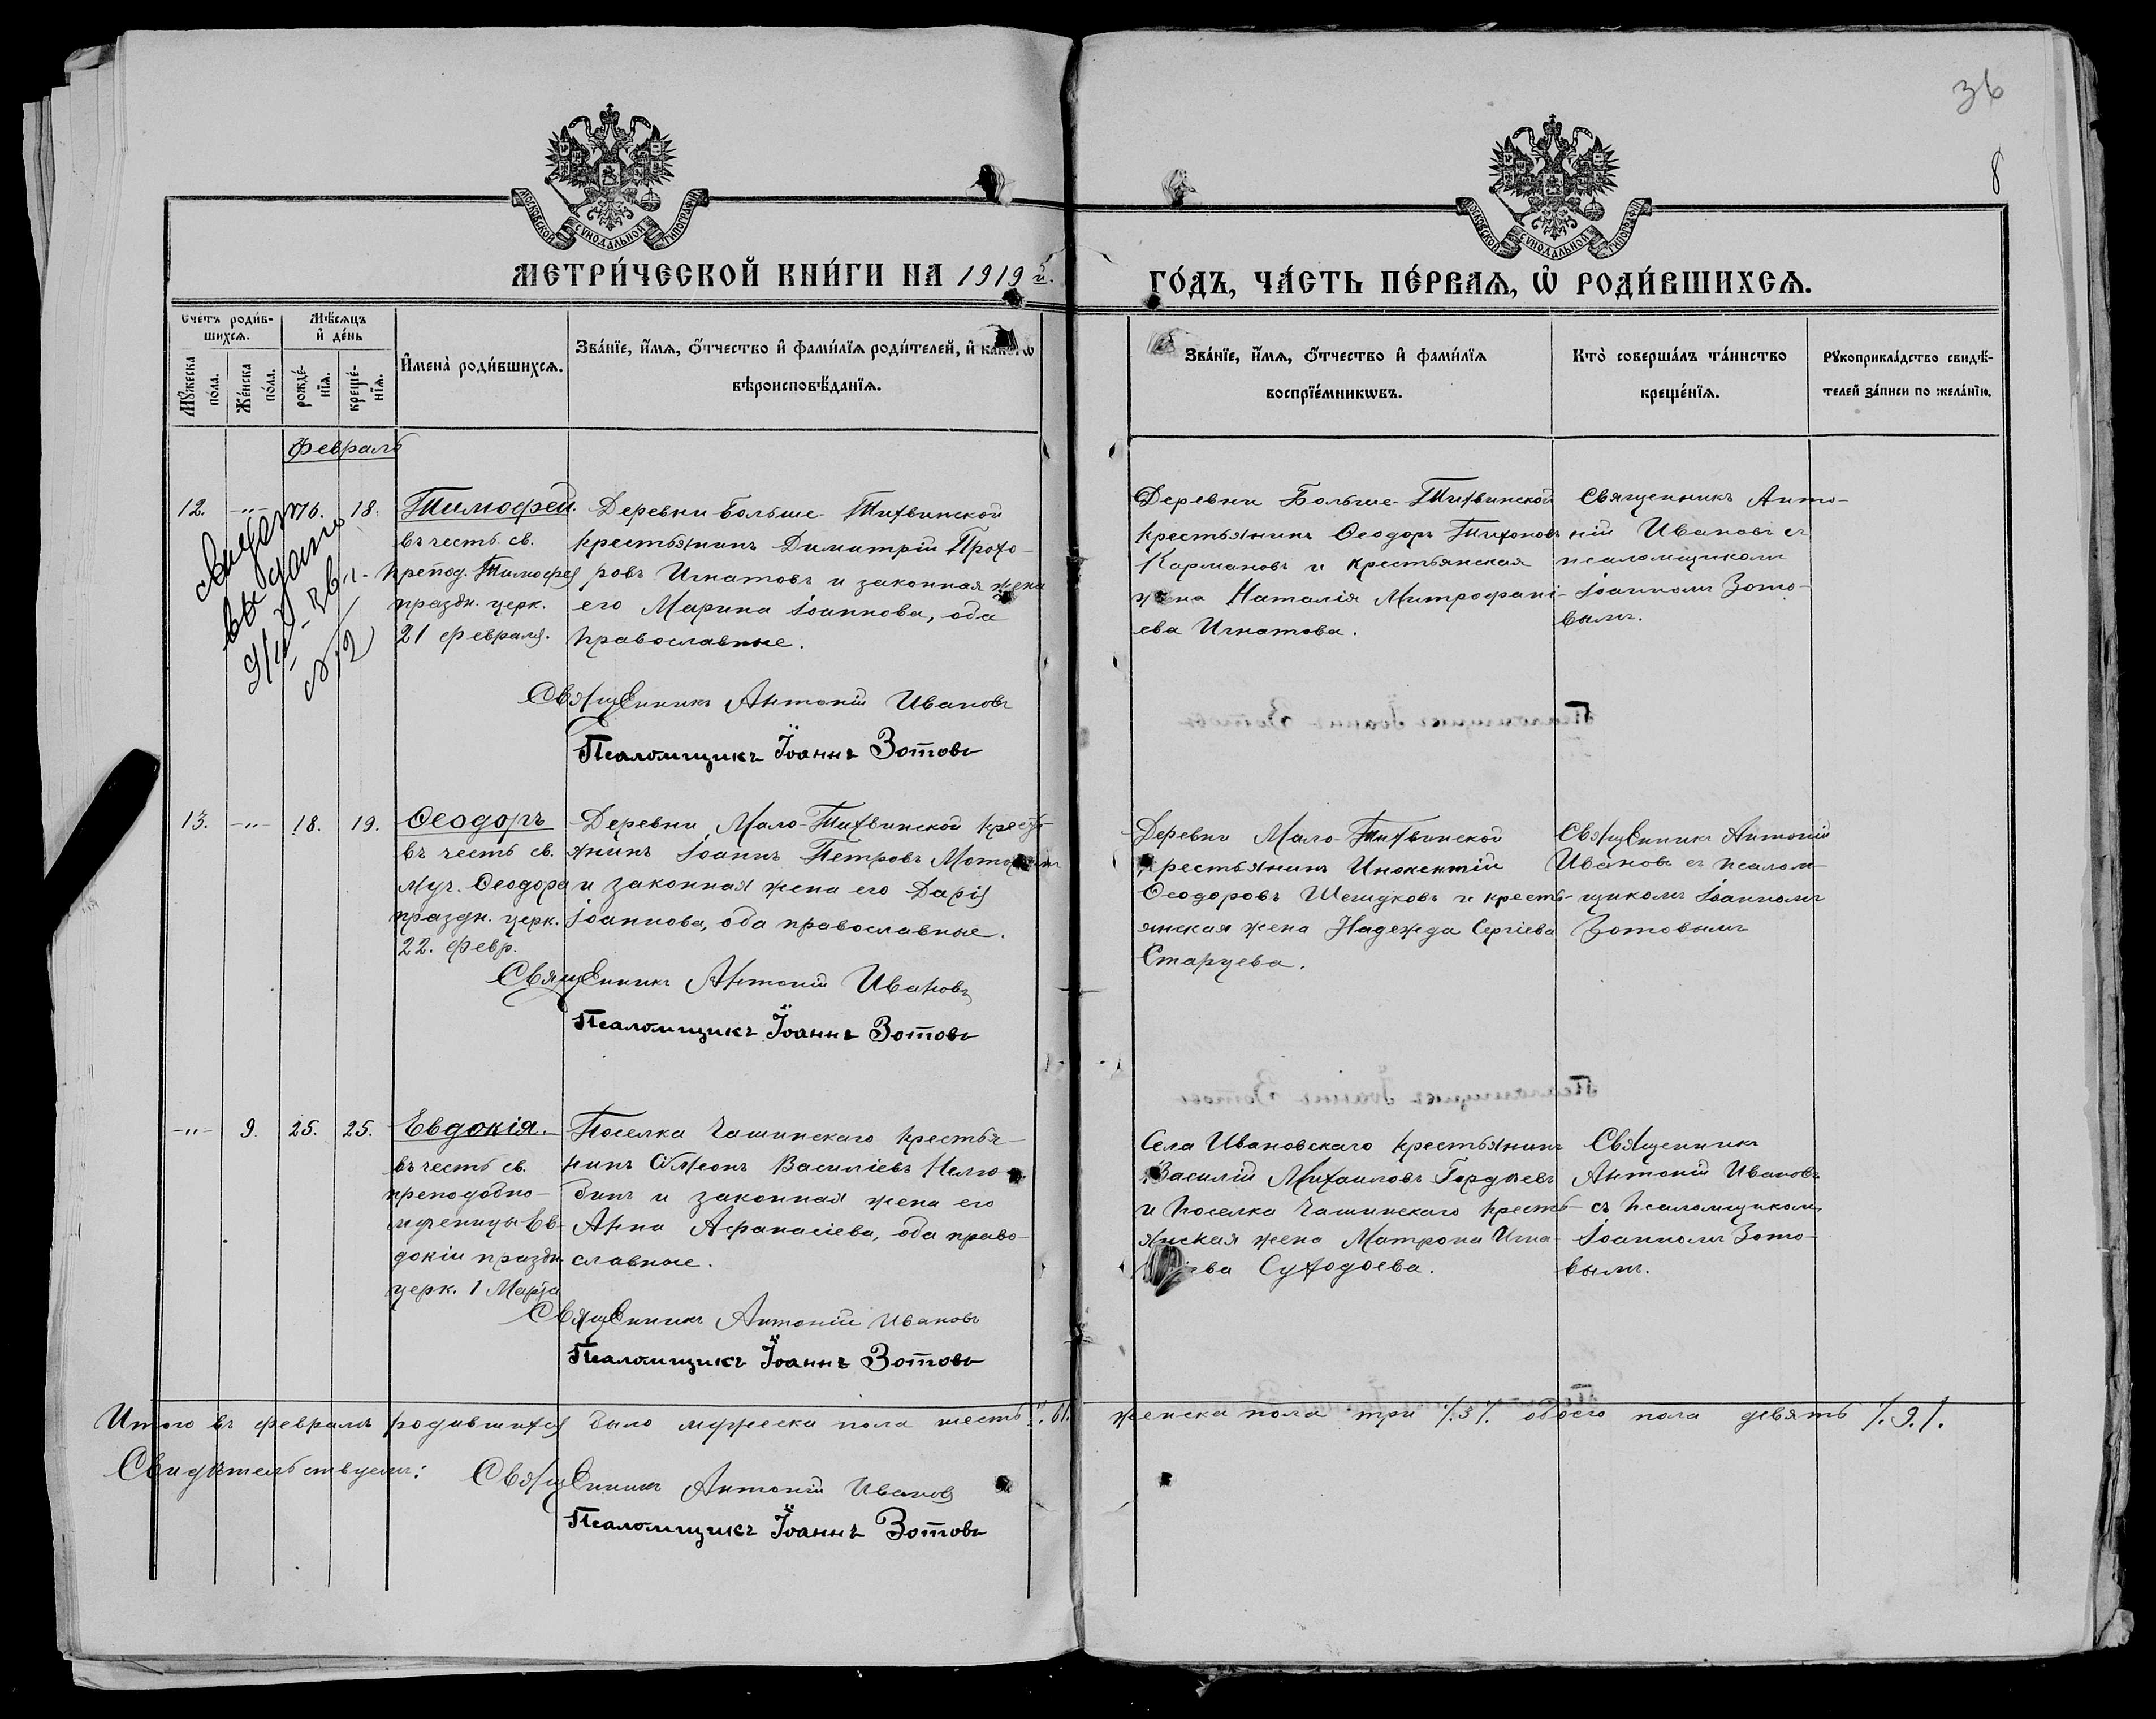 36
8
МОСКОВСКОЙ СѴНОДАЛЬНОЙ ТИПОГРАФІИ
МОСКОВСКОЙ СѴНОДАЛЬНОЙ ТИПОГРАФІИ
МЕТРИ́ЧЕСКОЙ КНИ́ГИ НА 1919 й.
ГО́ДЪ, ЧА́СТЬ ПЕ́РВАѦ, Ѡ҆ РОДИ́ВШИХСѦ.
Сче́тъ роди́в-
шихсѧ.
Мꙋ́жеска
по́ла.
Же́нска
по́ла.
Мѣ́сѧцъ
и҆ де́нь
рожде́-
нїѧ.
креще́-
нїѧ.
И҆мена̀ роди́вшихсѧ.
Зва́нїе, и҆́мѧ, ѻ҆́тчество и҆ фами́лїѧ роди́телей, и҆ како́гѡ
вѣроисповѣ́данїѧ.
Зва́нїе, и҆́мѧ, ѻ҆́тчество и҆ фами́лїѧ
воспрїе́мникѡвъ.
Кто̀ соверша́лъ та́инство
креще́нїѧ.
Рꙋкоприкла́дство свидѣ́-
телей за́писи по жела́нїю.
Февраль
12. -"- 16. 18.
выдано
Тимофей.
въ честь св.
препод. Тимофея
праздн. церк.
21 февраля.
Деревни Больше-Тихвинской
крестьянинъ Димитрій Прохо-
ровъ Игнатовъ и законная жена
его Марина Іоаннова, оба
православные.
Священникъ Антоній Ивановъ
Псаломщикъ Іоаннъ Зотовъ
Деревни Больше-Тихвинской
крестьянинъ Ѳеодоръ Тихоновъ
Кармановъ и крестьянская
жена Наталія Митрофані-
ева Игнатова.
Священникъ Анто-
ній Ивановъ съ
псаломщикомъ
Іоанномъ Зото-
вымъ.
13. -"- 18. 19.
Ѳеодоръ
въ честь св.
муч. Ѳеодора
праздн. церк.
22. февр.
Деревни Мало-Тихвинской кресть-
янинъ Іоаннъ Петровъ
и законная жена его Дарія
Іоаннова, оба православные.
Священникъ Антоній Ивановъ
Псаломщикъ Іоаннъ Зотовъ
Деревни Мало-Тихвинской
крестьянинъ Инокентій
Ѳеодоровъ Шешуковъ и кресть-
янская жена Надежда Сергіева
Старцева.
Священникъ Антоній
Ивановъ съ псалом-
щикомъ Іоанномъ
Зотовымъ
-"- 9. 25. 25.
Евдокія.
въ честь св.
преподобно-
мученицы Ев-
докіи праздн.
церк. 1 Марта
Поселка Чашинскаго крестья-
нинъ Сѵмеонъ Василіевъ Нелю-
бинъ и законная жена его
Анна Афанасіева, оба право-
славные.
Священникъ Антоній Ивановъ
Псаломщикъ Іоаннъ Зотовъ
Села Ивановскаго крестьянинъ
Василій Михаиловъ Гордѣевъ
и поселка Чашинскаго кресть-
янская жена Матрона Игна-
тіева Суходоева.
Священникъ
Антоній Ивановъ
съ псаломщикомъ
Іоанномъ Зото-
вымъ.
Итого въ февралѣ родившихся было мужеска пола шесть /.6/. женска пола три /.3/. обоего пола девять /.9./.
Свидѣтельствуемъ:
Священникъ Антоній Ивановъ
Псаломщикъ Іоаннъ Зотовъ